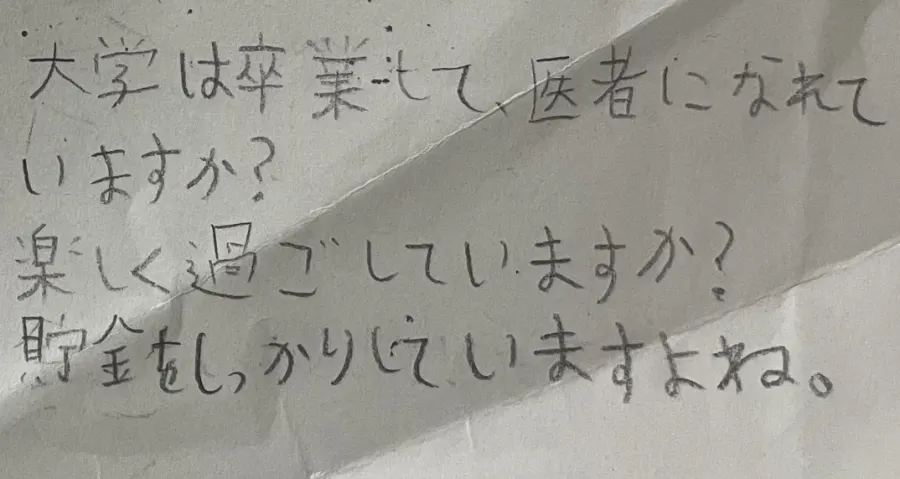 大学は卒業して、医者になれて
いますか?
楽しく過ごしていますか?
貯金をしっかりしていますよね。